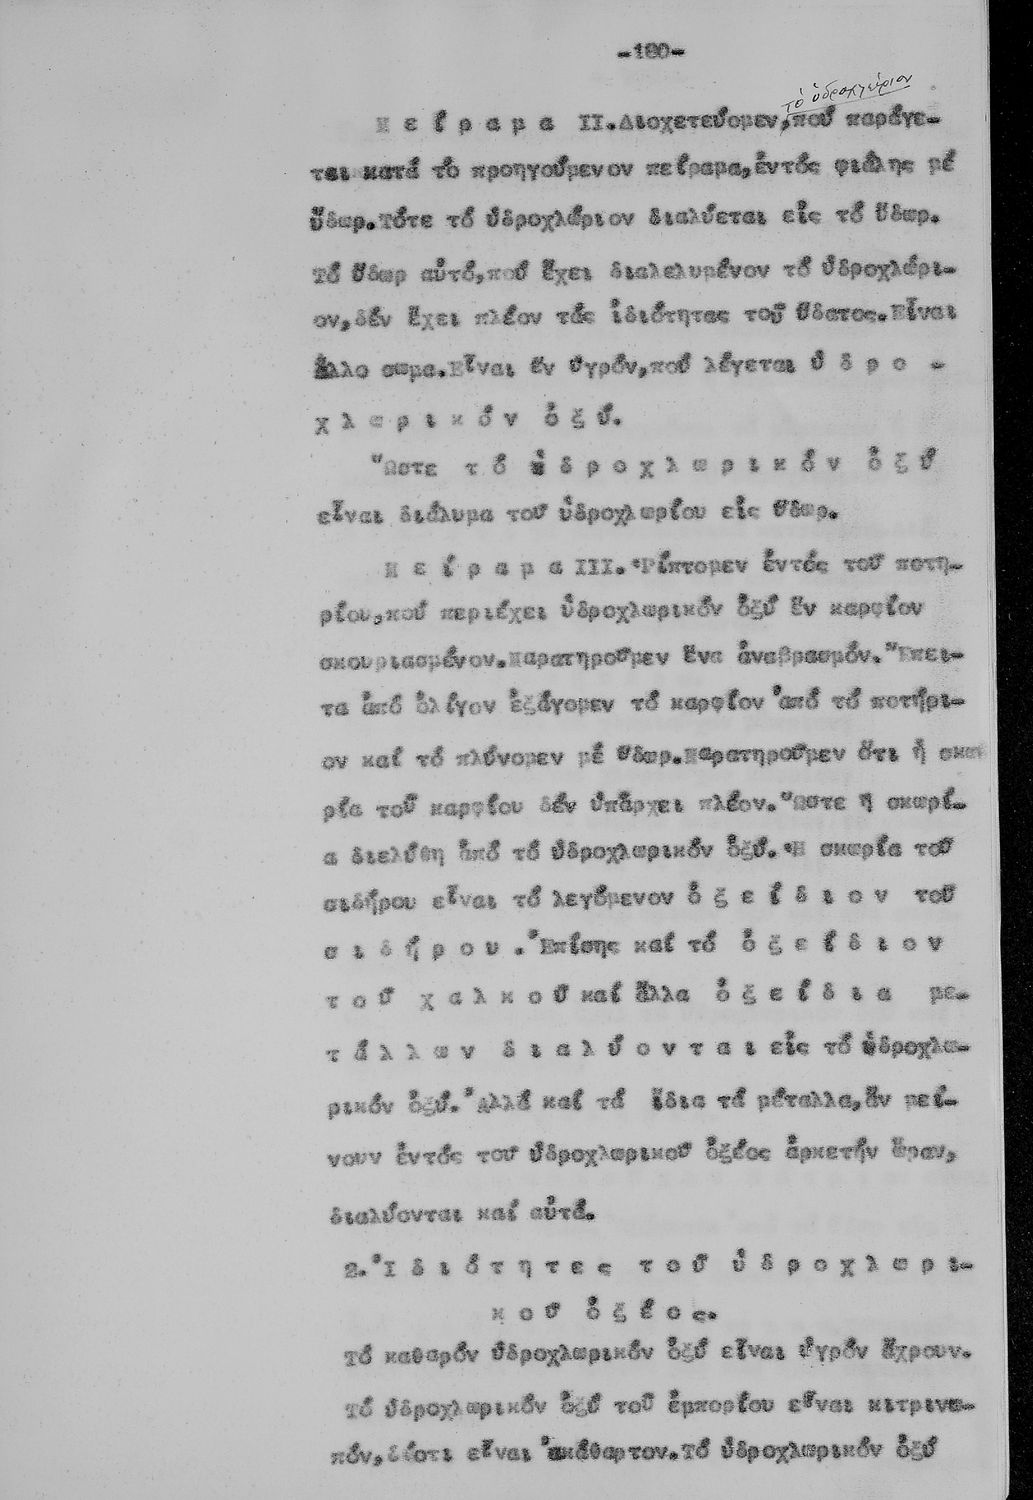 -180-
τό ὑδροχλώριον
Π ε ί ρ α μ α II. Διοχετεύομεν, πού παράγε-
ται κατά τό προηγούμενον πείραμα, ἐντός φιάλης μέ
ὕδωρ. Τότε τό ὑδροχλώριον διαλύεται εἰς τό ὕδωρ.
Τό ὕδωρ αὐτό, πού ἔχει διαλελυμένον τό ὑδροχλώρι-
ον, δέν ἔχει πλέον τάς ἰδιότητας τοῦ ὕδατος. Εἶναι
ἄλλο σωμα. Εἶναι ἕν ὑγρόν, πού λέγεται ὑ δ ρ ο -
χ λ ω ρ ι κ ό ν ὀ ξ ύ.
Ὥστε τ ό ὑ δ ρ ο χ λ ω ρ ι κ ό ν ὀ ξ ύ
εἶναι διάλυμα τοῦ ὑδροχλωρίου εἰς ὕδωρ.
Π ε ί ρ α μ α III. Ῥίπτομεν ἐντός τοῦ ποτη-
ρίου, πού περιέχει ὑδροχλωρικόν ὀξύ ἕν καρφίον
σκουριασμένον. Παρατηροῦμεν ἕνα ἀναβρασμόν. Ἔπει-
τα ἀπό ὀλίγον ἐξάγομεν τό καρφίον ἀπό τό ποτήρι-
ον καί τό πλύνομεν μέ ὕδωρ. Παρατηροῦμεν ὅτι ἡ σκω
ρία τοῦ καρφίου δέν ὑπάρχει πλέον. Ὥστε ἡ σκωρί-
α διελύθη ἀπό τό ὑδροχλωρικόν ὀξύ. Ἡ σκωρία τοῦ
σιδήρου εἶναι τό λεγόμενον ὀ ξ ε ί δ ι ο ν τοῦ
σ ι δ ή ρ ο υ. Ἐπίσης καί τό ὀ ξ ε ί δ ι ο ν
τ ο ῦ χ α λ κ ο ῦ καί ἄλλα ὀ ξ ε ί δ ι α με-
τ ά λ λ ω ν δ ι α λ ύ ο ν τ α ι εἰς τό ὑδροχλω-
ρικόν ὀξύ. Ἀλλά καί τά ἴδια τά μέταλλα, ἄν μεί-
νουν ἐντός τοῦ ὑδροχλωρικοῦ ὀξέος ἀρκετήν ὥραν,
διαλύονται καί αὐτά.
2. Ἰ δ ι ό τ η τ ε ς τ ο ῦ ὑ δ ρ ο χ λ ω ρ ι -
κ ο ῦ ὀ ξ έ ο ς.
Τό καθαρόν ὑδροχλωρικόν ὀξύ εἶναι ὑγρόν ἄχρουν.
Τό ὑδροχλωρικόν ὀξύ τοῦ ἐμπορίου εἶναι κιτρινω-
πόν, διότι εἶναι ἀκάθαρτον. Τό ὑδροχλωρικόν ὀξύ